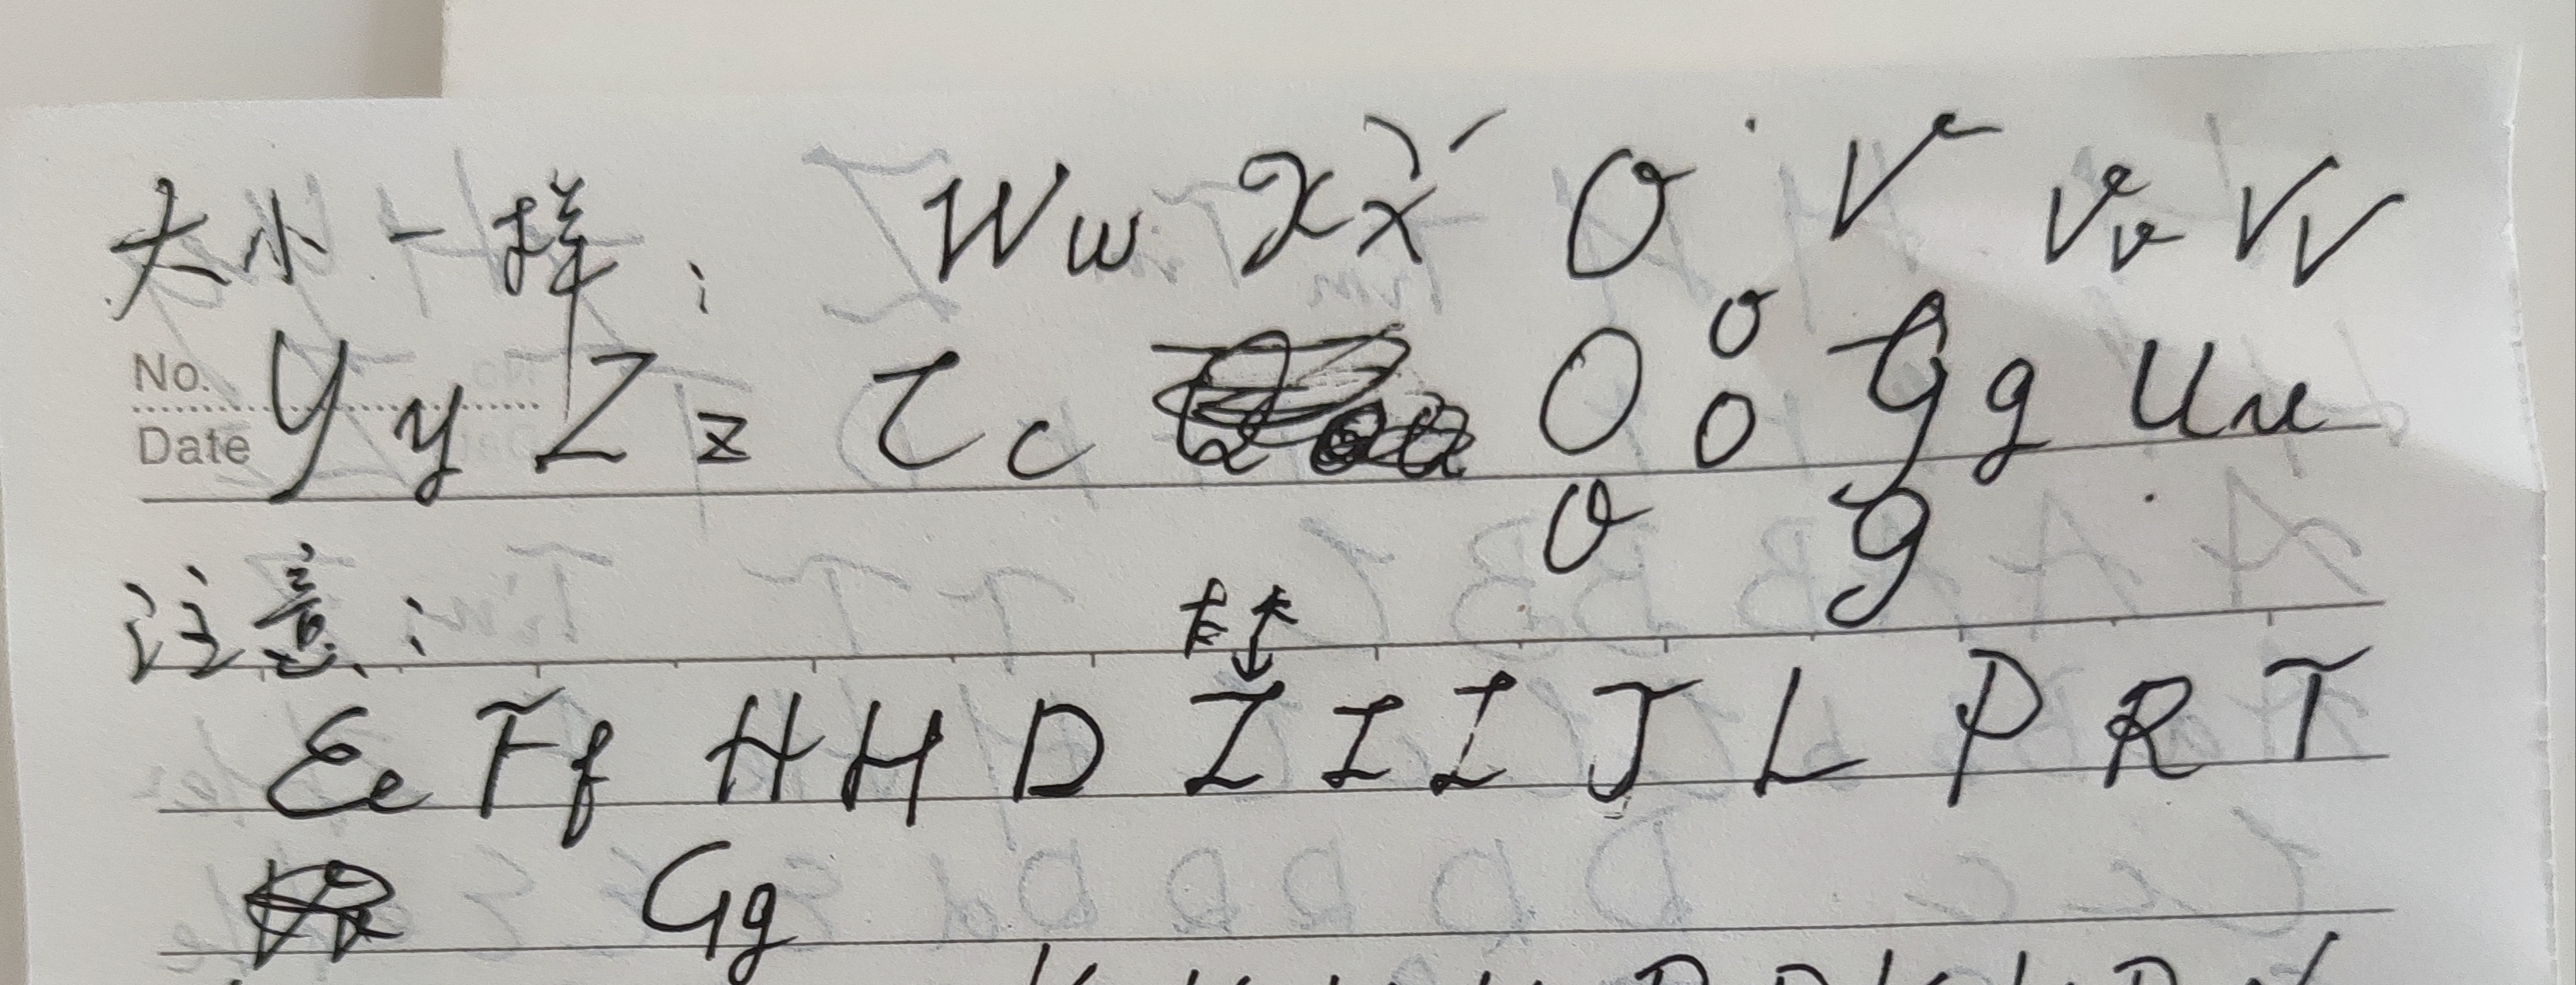 大小一样: W w X x O V V v V V
No. Y y Z z C c O o o G g U u
Date
o g
注意: 大 长
E e F f H H D I I I J L P R T
G g